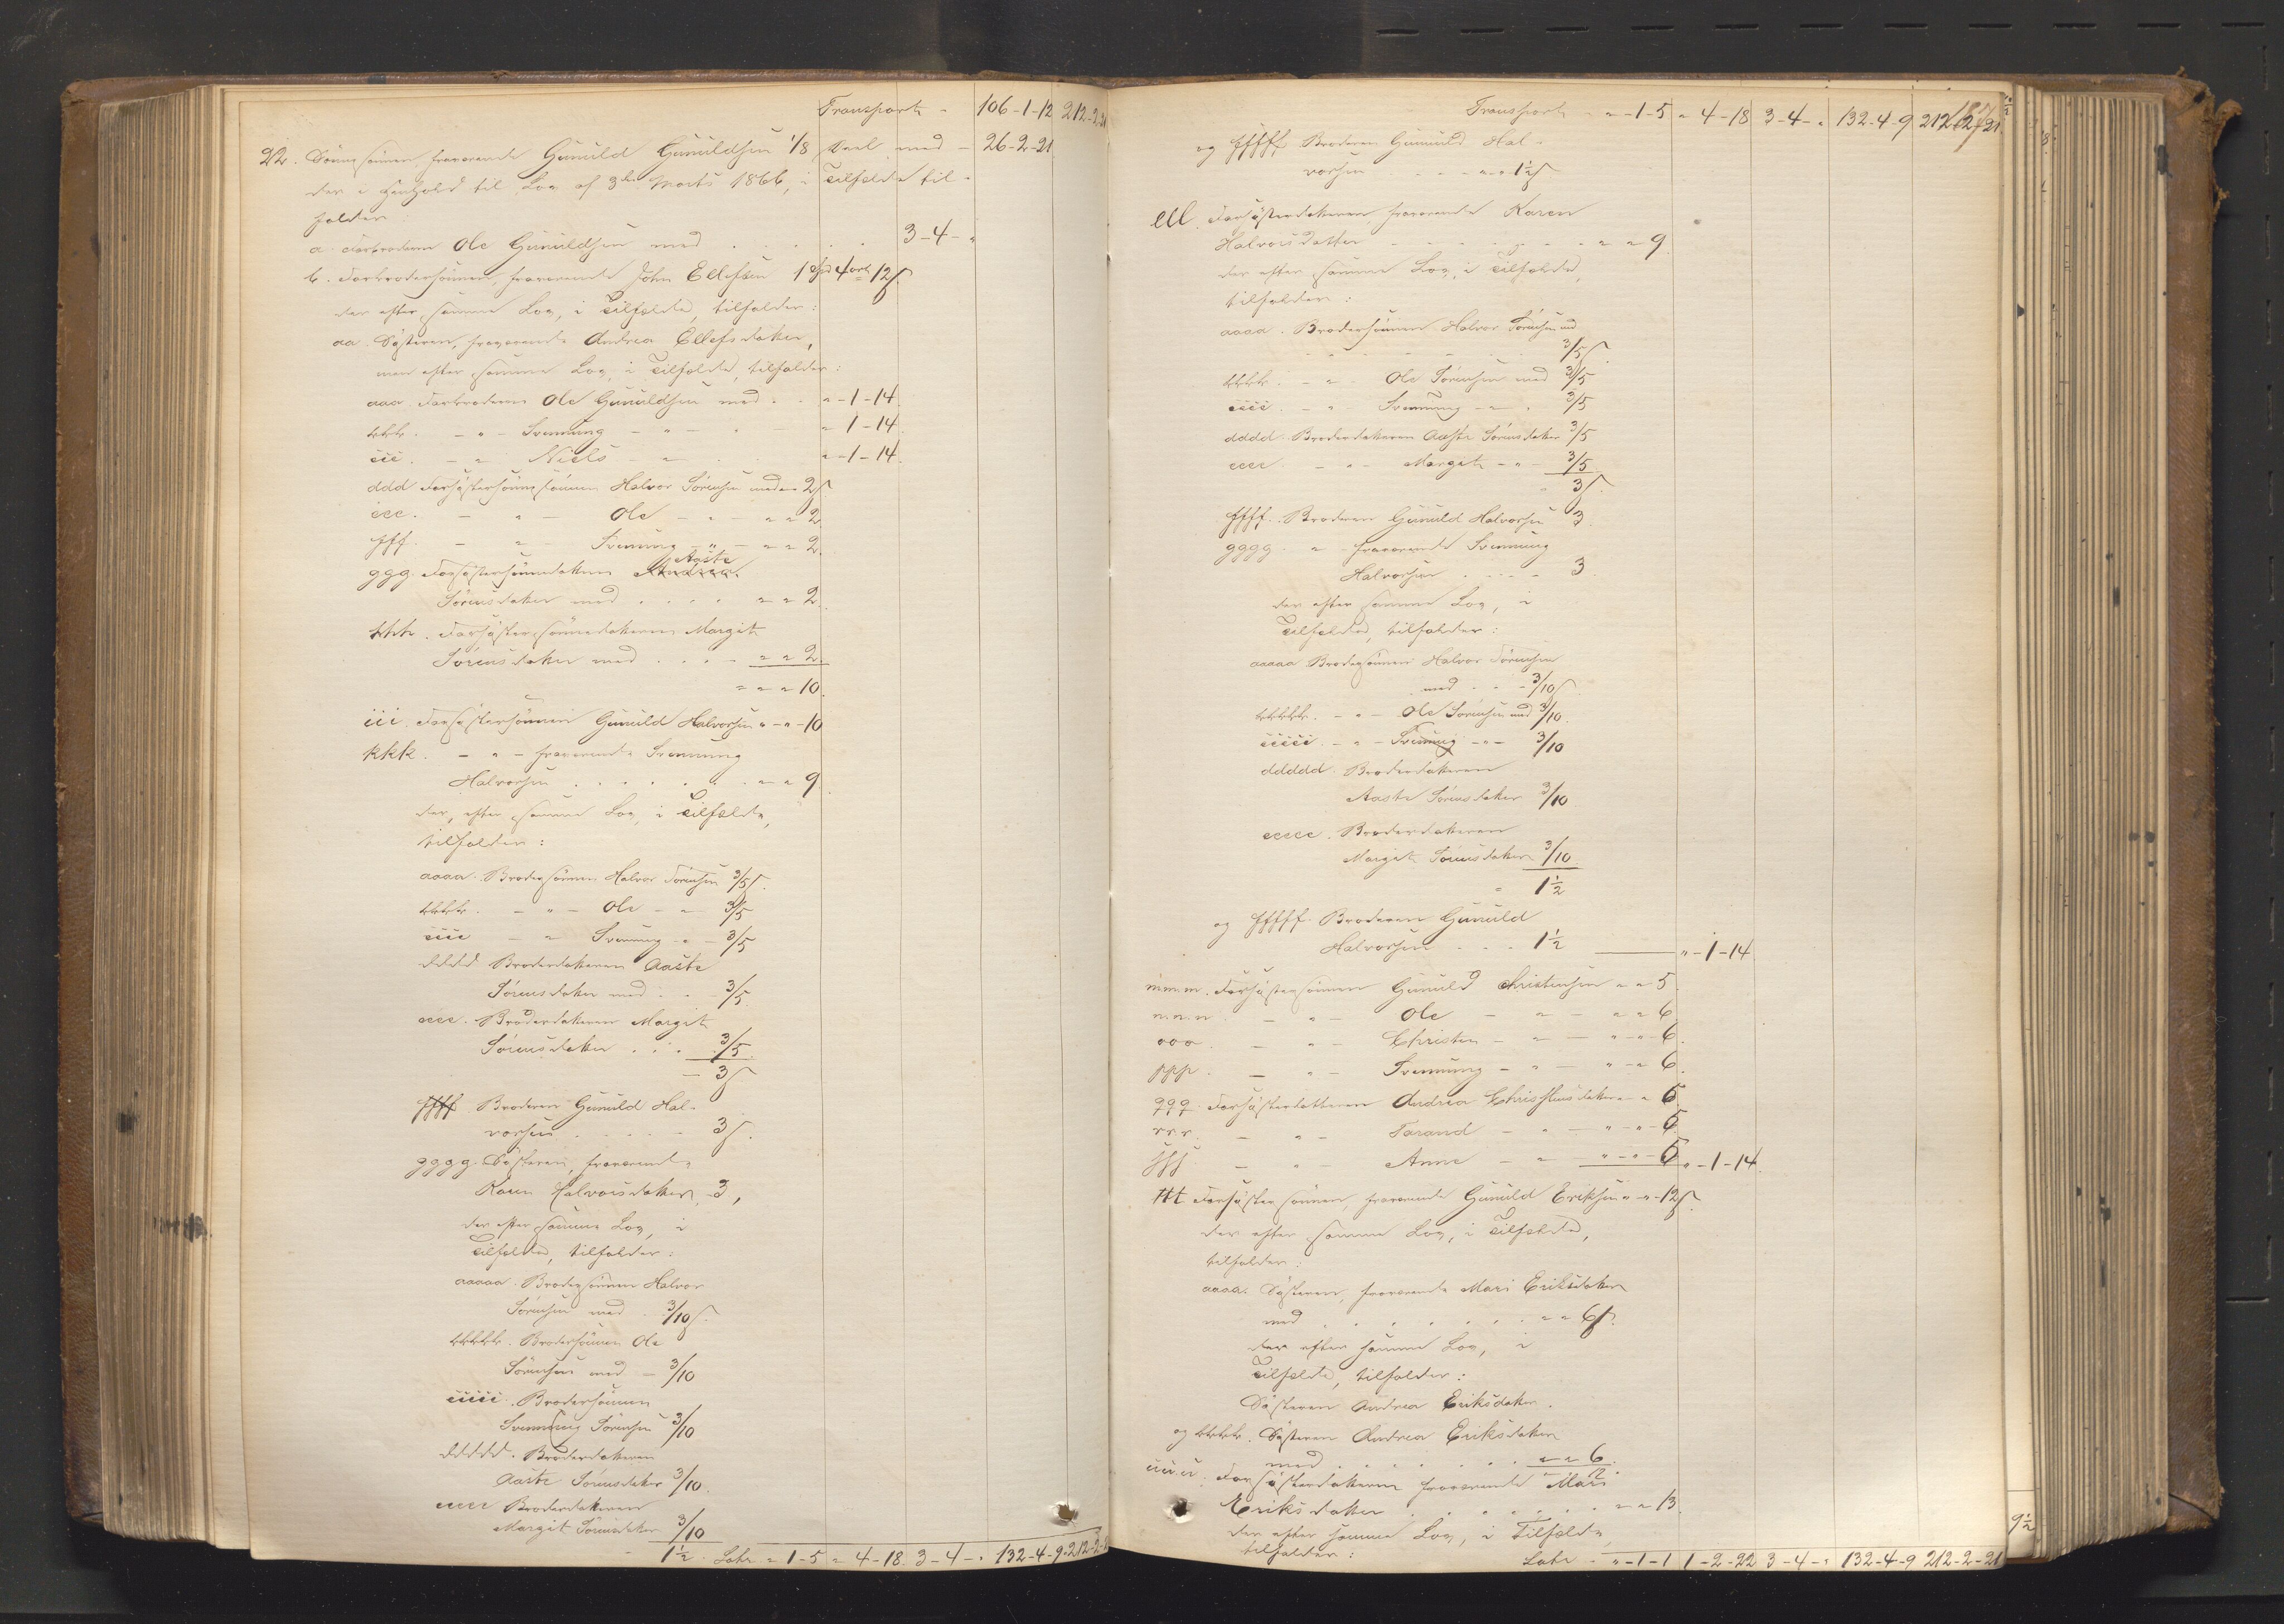 Transport - 106-1-12 212-2-21
22. Sønnesønnen, fraværende Gunuld Gunuldsen 1/8 Deel med - 26-2-21
der i Henhold til Lov af 3die Marts 1866, i Tilfælde til-
falder:
a. Farbroderen Ole Gunuldsen med . . . . . 3-4-"
b. Farbrodersønnen, fraværende John Ellefsen 1 Spd 4 ort 12 ß.
der efter samme Lov, i Tilfælde, tilfalder:
aa. Søsteren, fraværende Andrea Ellefsdatter,
men efter samme Lov, i Tilfælde, tilfalder:
aaa. Farbroderen Ole Gunuldsen med . . "-1-14
bbb. - " - Svennung - " - "-1-14
ccc. - " Niels - " "-1-14.
ddd Farsøstersønnesønnen Halvor Sørensen med "- 2 ß
eee. - " - Ole - " - " " 2
fff. - " - Svennung - " - " " 2.
Aaste
ggg. Farsøstersønnedatteren Andrea
Sørensdatter med . . . . " " 2.
hhh. Farsøstersønnedatteren Margit
Sørensdatter med . . . - " " 2.
" " " 10.
iii. Farsøstersønnen Gunuld Halvorsen "-"-10
kkk. - " - fraværende Svennung
Halvorsen . . . . . . " " 9
der, efter samme Lov, i Tilfælde,
tilfalder:
aaaa. Brodersønnen Halvor Sørensen 3/5 ß.
bbbb. - " - Ole - " - 3/5
cccc - " Svennung - " - 3/5
dddd Broderdatteren Aaste
Sørensdatter med . . 3/5
eeee. Broderdatteren Margit
Sørensdatter . . . 3/5.
- 3 ß
ffff Broderen Gunuld Hal-
vorsen . . . . - 3 ß.
gggg. Søsteren, fraværende
Karen Halvorsdatter, 3,
der efter samme Lov, i
Tilfælde, tilfalder:
aaaaa. Brodersønnen Halvor
Sørensen med . 3/10 ß.
bbbbb. Brodersønnen Ole
Sørensen med - 3/10
ccccc. Brodersønnen
Svennung Sørensen 3/10
ddddd. Broderdatteren
Aaste Sørensdatter 3/10.
eeeee Broderdatteren
Margit Sørensdatter 3/10
- 1½. Latr. " 1-5 " 4-18 3-4-" 132-4-9 212-2-21
Transport - "-1-5 " 4-18 3-4-" 132-4-9 212-2-21
og fffff Broderen Gunuld Hal-
vorsen . . . - " " 1½ ß
lll. Farsøsterdatteren, fraværende Karen
Halvorsdatter - - - - - - " " 9.
der efter samme Lov, i Tilfælde,
tilfalder:
aaaa. Brodersønnen Halvor Sørensen med
3/5 ß.
bbbb. - " - Ole Sørensen med 3/5
cccc. - " - Svennung - " . 3/5
dddd. Broderdatteren Aaste Sørensdatter 3/5
eeee - " - Margit - " - 3/5
" 3 ß.
ffff. Broderen Gunuld Halvorsen 3.
gggg. " fraværende Svennung
Halvorsen . . . . 3.
der efter samme Lov, i
Tilfælde, tilfalder:
aaaaa Brodersønnen Halvor Sørensen
med . . - 3/10 ß
bbbbb. - " - Ole Sørensen med 3/10.
ccccc. - " - Svennung - " - 3/10
ddddd. Broderdatteren
Aaste Sørensdatter 3/10
eeeee. Broderdatteren
Margit Sørensdatter 3/10
" 1½
og fffff. Broderen Gunuld
Halvorsen . . . 1½ "-1-14
mmm. Farsøstersønnen Gunuld Christensen " " 5.
nnn. - " - Ole - " - " " 6
ooo. - " - Christen - " - "-" 6.
ppp. - " - Svennung - " - "-" 6.
qqq. Farsøsterdatteren Andrea Christensdatter " " 5.
rrr. - " - Tarand - " - "-"- 5
sss - " - Anne - " - "-"- 5 "-1-14.
ttt Farsøstersønnen, fraværende Gunuld Eriksen "-"-12 ß.
der efter samme Lov, i Tilfælde,
tilfalder:
aaaa. Søsteren, fraværende Mari Eriksdatter
med . . . . . . . " " 6 ß.
der efter samme Lov, i
Tilfælde, tilfalder:
Søsteren Andrea Eriksdatter.
og bbbb. Søsteren Andrea Eriksdatter
med . . . . . . . " " 6.
" 12.
uuu. Farsøsterdatteren fraværende Mari
Eriksdatter . . . . . . . " " 13.
der efter samme Lov, i Tilfælde
tilfalder: Latr. - "-1-1 1-2-22 3-4-" 132-4-9 212-2-21
9½